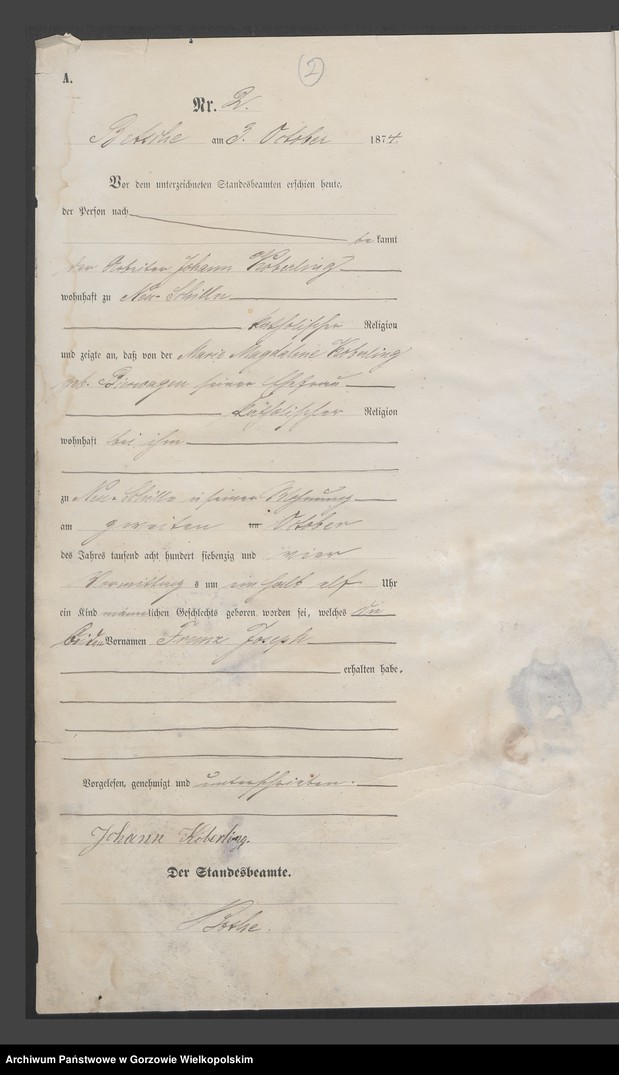 2
A.
Nr. 2.
Betsche am 3. October 1874.
Vor dem unterzeichneten Standesbeamten erschien heute,
der Person nach
bekannt
der Arbeiter Johann Koberling
wohnhaft zu Neu-Schilln
katholischer Religion
und zeigte an, daß von der Maria Magdalina Koberling
geb. Bierwagen seiner Ehefrau
katholischer Religion
wohnhaft bei ihm
zu Neu-Schilln in seiner Wohnung
am zweiten ten October
des Jahres tausend acht hundert siebenzig und vier
Vormittags um ein halb elf Uhr
ein Kind männlichen Geschlechts geboren worden sei, welches die
beiden Vornamen Franz Joseph
erhalten habe.
Vorgelesen, genehmigt und unterschrieben.
Johann Koberling.
Der Standesbeamte.
Archiwum Państwowe w Gorzowie Wielkopolskim